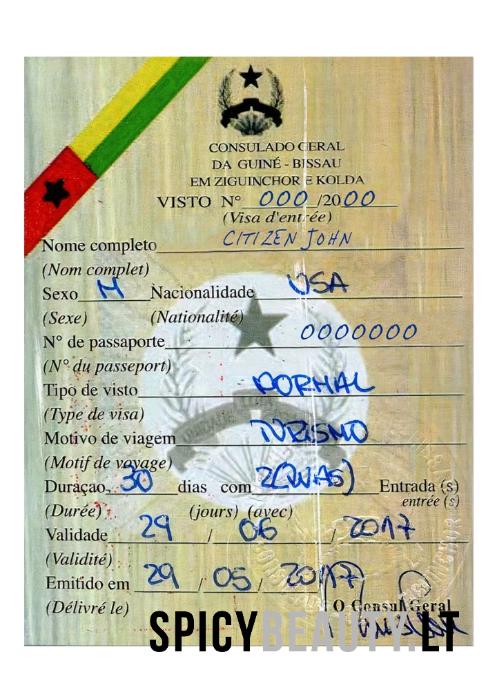 CONSULADO GERAL
DA GUINÉ - BISSAU
EM ZIGUINCHOR E KOLDA
VISTO Nº 000 /2000
(Visa d'entrée)
Nome completo CITIZEN JOHN
(Nom complet)
Sexo M Nacionalidade USA
(Sexe) (Nationalité)
Nº de passaporte 0000000
(N° du passeport)
Tipo de visto NORMAL
(Type de visa)
Motivo de viagem TURISMO
(Motif de voyage)
Duraçao 30 dias com 2(DUAS) Entrada (s)
(Durée) (jours) (avec) entrée (s)
Validade 29 / 06 / 2017
(Validité)
Emitido em 29 / 05 / 2017
(Délivré le) O Consul Geral
SPICYBEAUTY.LT